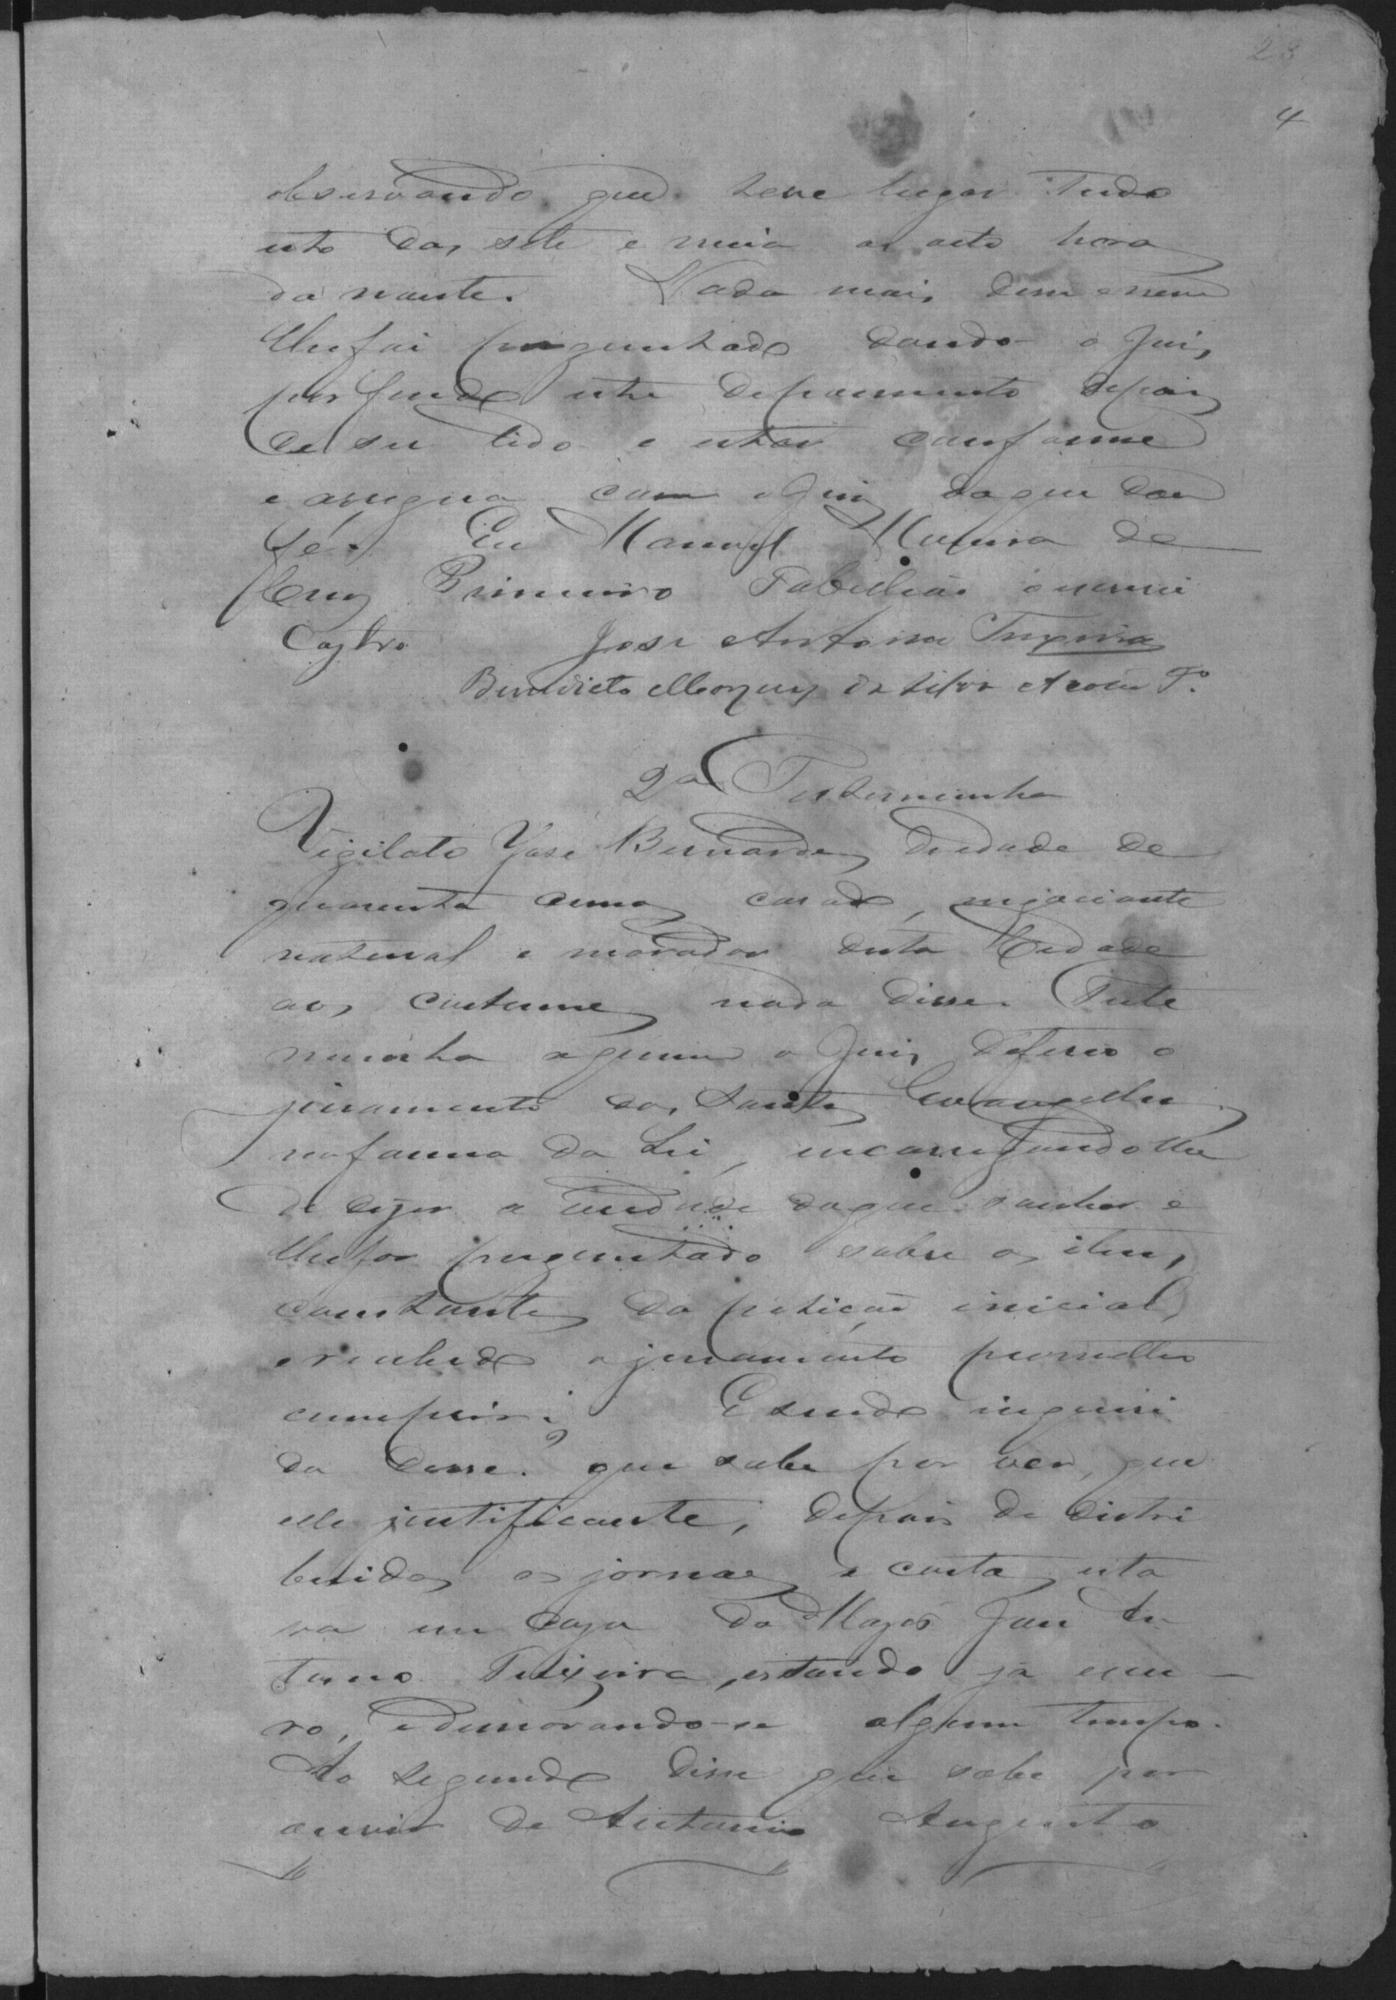 23
4
observando que teve lugar tudo
isto das sete e meia as oito horas
da noute. Nada mais disse e nem
lhe foi preguntado dando o Juis
por findo este depoimento depois
de ser lido e estar conforme
e assigna com o Juis do que dou
fé. Eu Manoel Moreira de
Cruz Primeiro Tabellião o escrevi
Castro Jose Antonio Teixeira
Benedicto Marques da Silva
2ª Testemunha
Vigilato José Bernardes de idade de
quarenta annos casado, negociante
natural e morador desta Cidade
aos costumes nada disse. Teste
munha a quem o Juis deferio o
juramento dos Santos Evangelhos
na forma da Lei, encarregando lhe
de dizer a verdade do que souber e
lhe for preguntado sobre os itens
constantes da petição inicial,
e recebido o juramento prometteo
cumprir; E sendo inquiri
do disse: que sabe por ver, que
elle justificante, depois de distri
buidos os jornaes e cartas esta
va em casa do Major José An
tonio Teixeira, estando já escu-
ro, e demorando-se algum tempo.
Ao segundo disse que sabe por
ouvir de Antonio Augusto